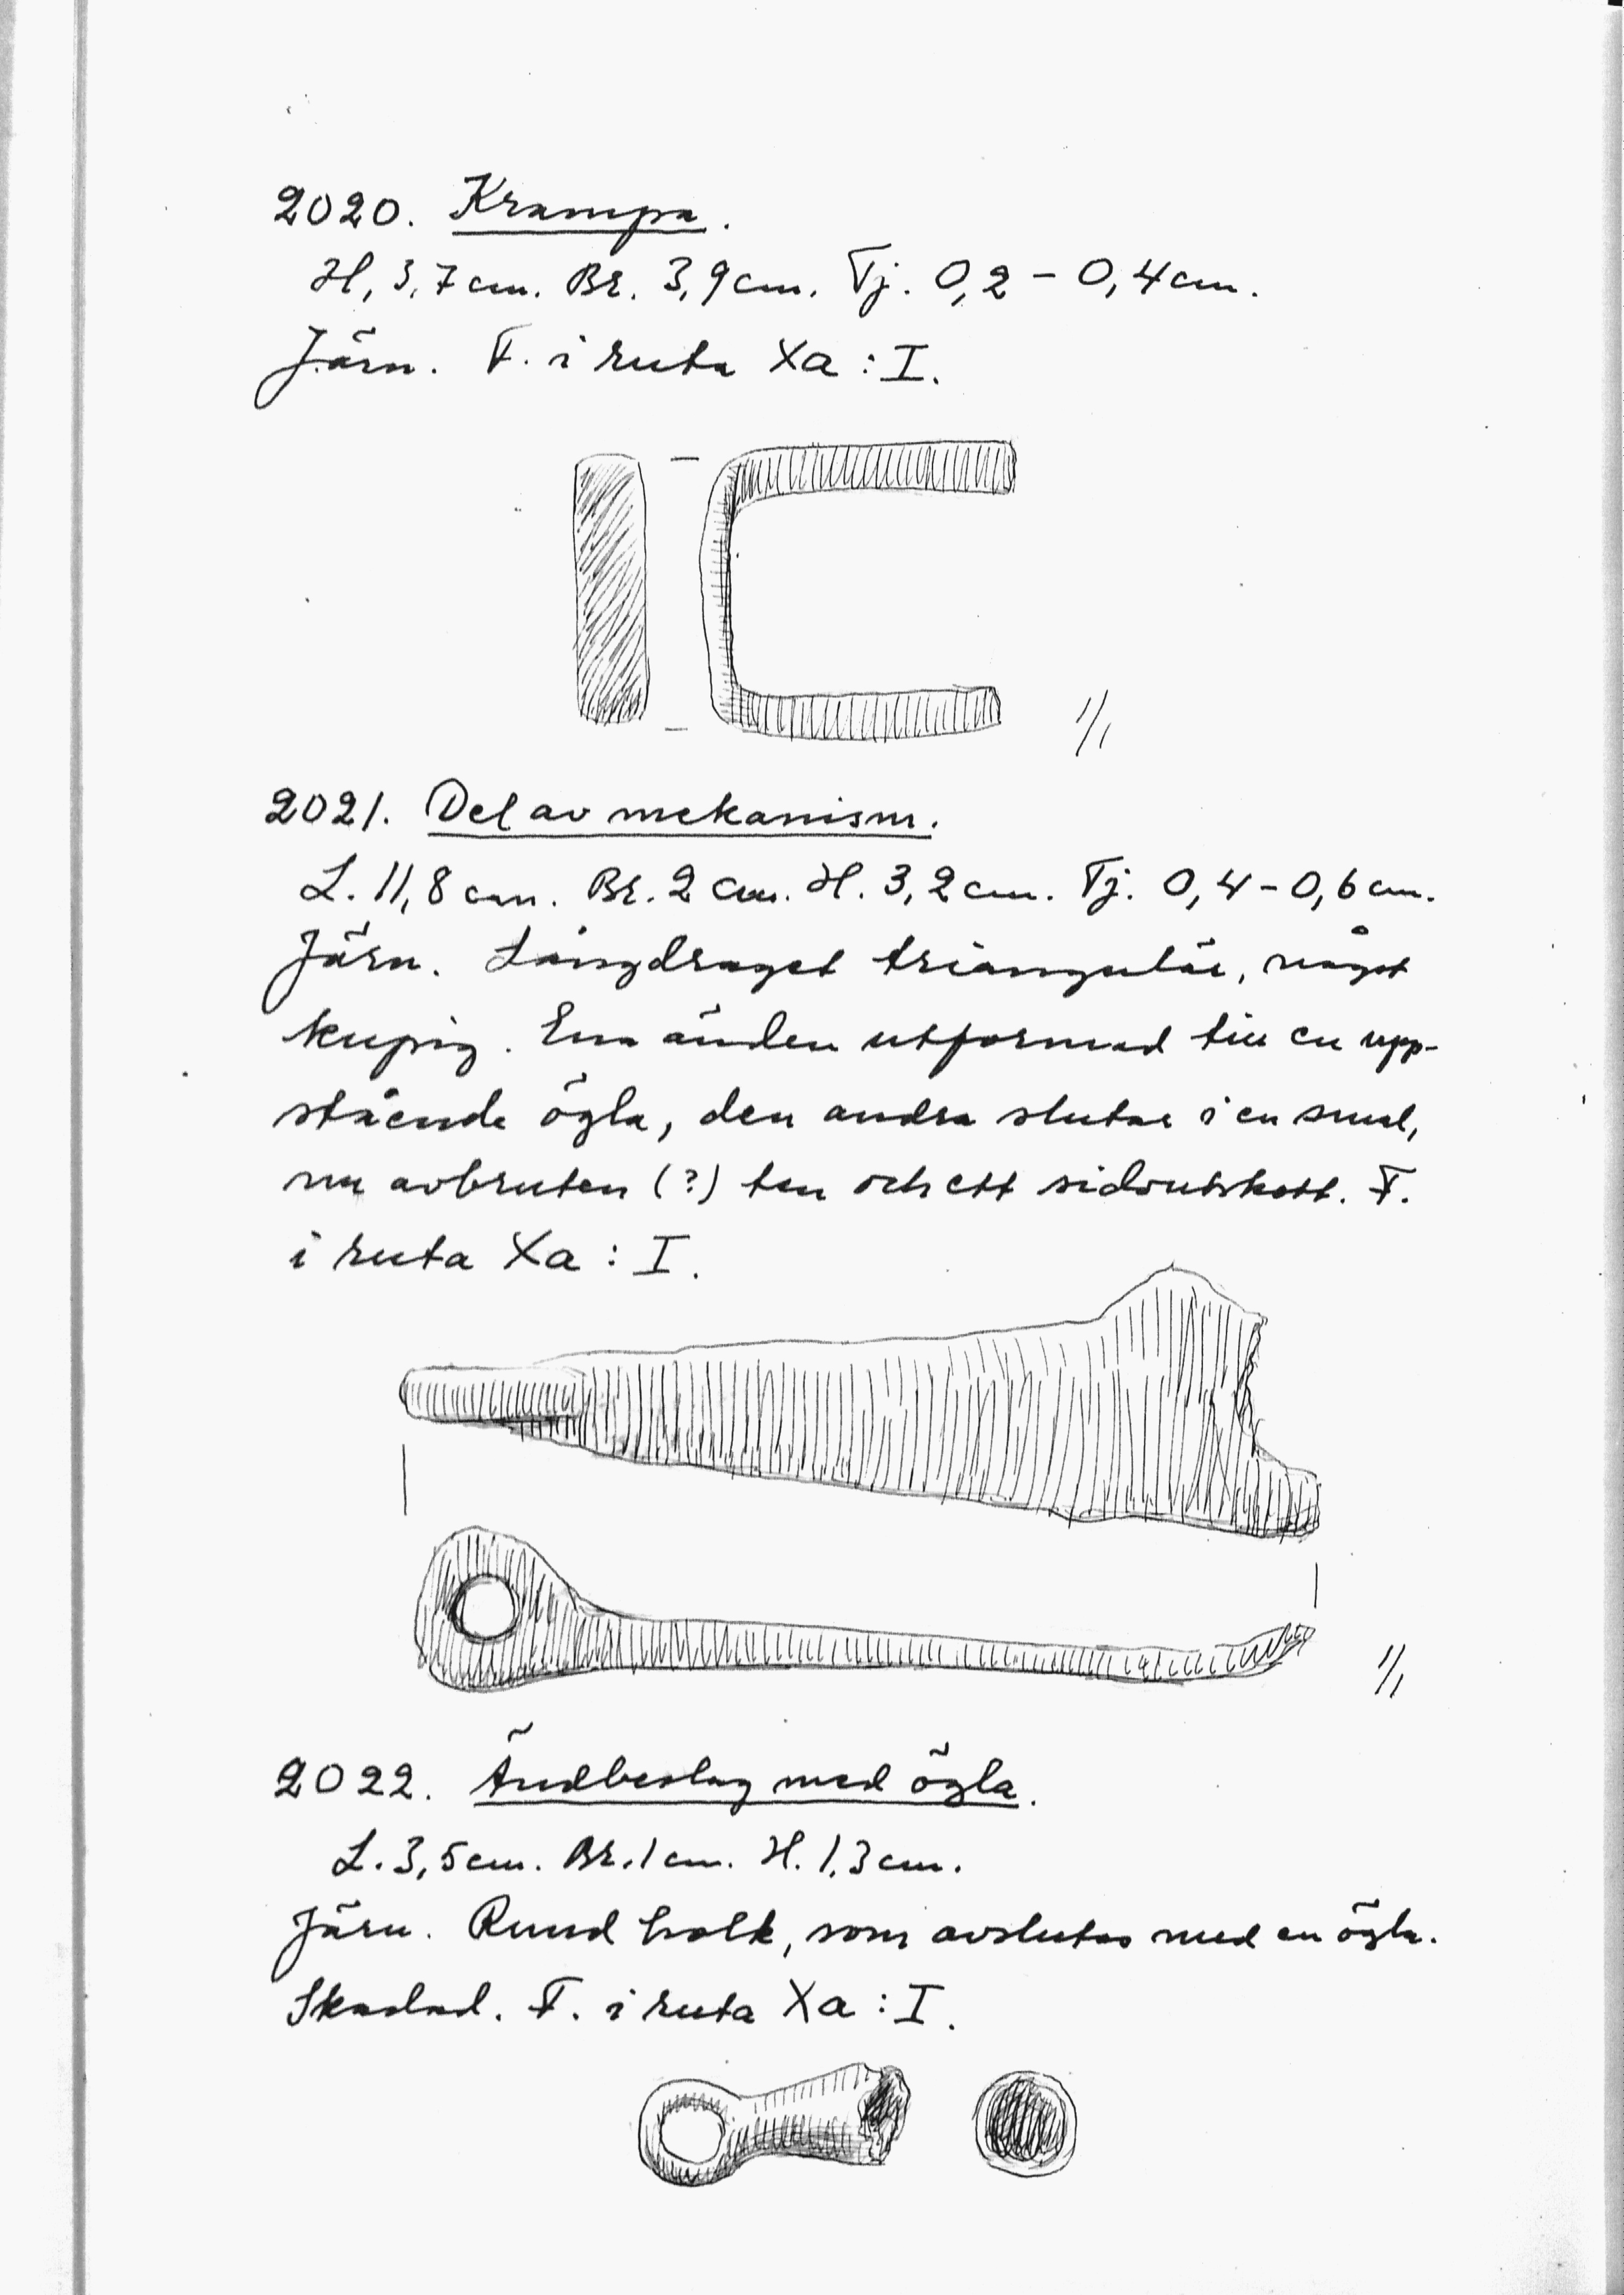 2020. Krampa.
H, 3,7 cm. Br. 3,9 cm. Tj. 0,2 – 0,4 cm.
Järn. F. i ruta Xa : I.
1/1
2021. Del av mekanism.
L. 11,8 cm. Br. 2 cm. H. 3,2 cm. Tj. 0,4 – 0,6 cm.
Järn. Långdraget triangulär, något
kupig. Ena änden utformad till en upp-
stående ögla, den andra slutar i en smal,
nu avbruten (?) ten och ett sidoutskott. F.
i ruta Xa : I.
1/1
2022. Ändbeslag med ögla.
L. 3,5 cm. Br. 1 cm. H. 1,3 cm.
Järn. Rund holk, som avslutas med en ögla.
Skadad. F. i ruta Xa : I.